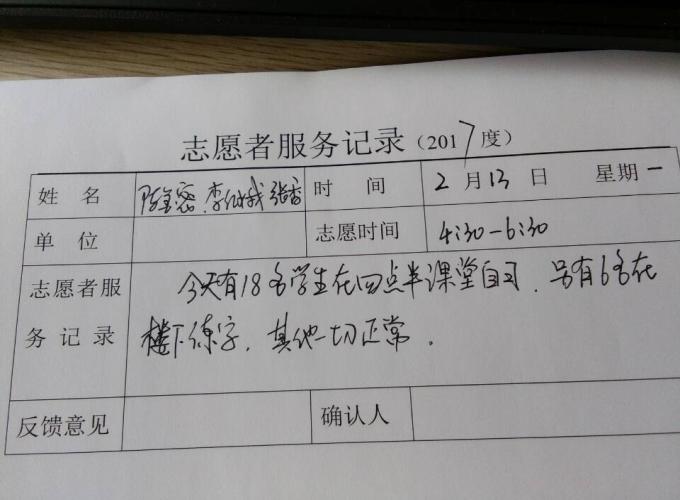 志愿者服务记录（2017度）
姓 名 陈宝密、李仙娥 张香 时 间 2月13日 星期一
单 位 志愿时间 4:30-6:30
志愿者服务记录 今天有18名学生在四点半课堂自习，另有6名在
楼下练字，其他一切正常．
反馈意见 确认人